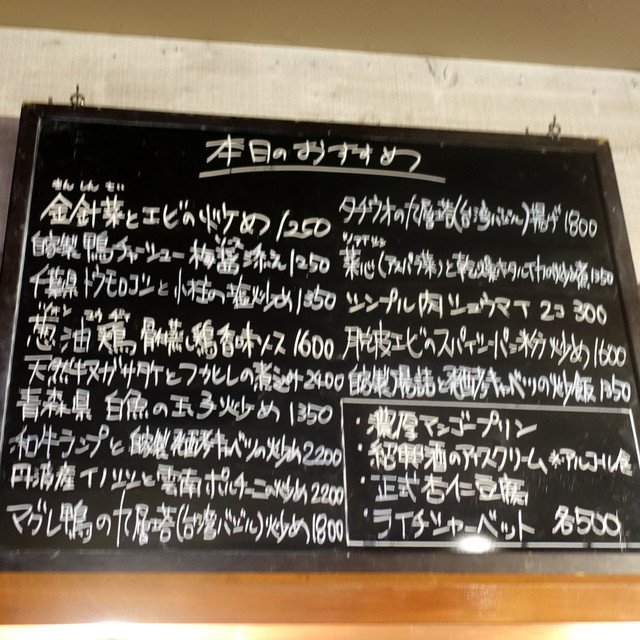 本日のおすすめ
きんしんさい
金針菜とエビの炒め 1250
自家製 鴨チャーシュー 梅醤添え 1250
千葉県 トウモロコシと小柱の塩炒め 1350
葱油鶏 骨付蒸し鶏香味ソース 1600
天然キヌガサタケとフカヒレの煮込み 2400
青森県 白魚の玉子炒め 1350
和牛ランプと自家製廼キャベツの炒め 2200
丹波産イノシシと雲南ポルチーニの炒め 2200
マグレ鴨の九層塔(台湾バジル)炒め 1800
タチウオの九層塔(台湾バジル)揚げ 1800
菜心(アスパラ菜)と乾燥モンゴウイカの炒め煮 1350
シンプル肉シュウマイ 2コ 300
脱皮エビのスパイシーパン粉炒め 1600
自家製湯詰と キャベツの炒飯 1350
・濃厚マンゴープリン
・紹興酒のアイスクリーム ※アルコール含
・正式杏仁豆腐
・ライチシャーベット 各500